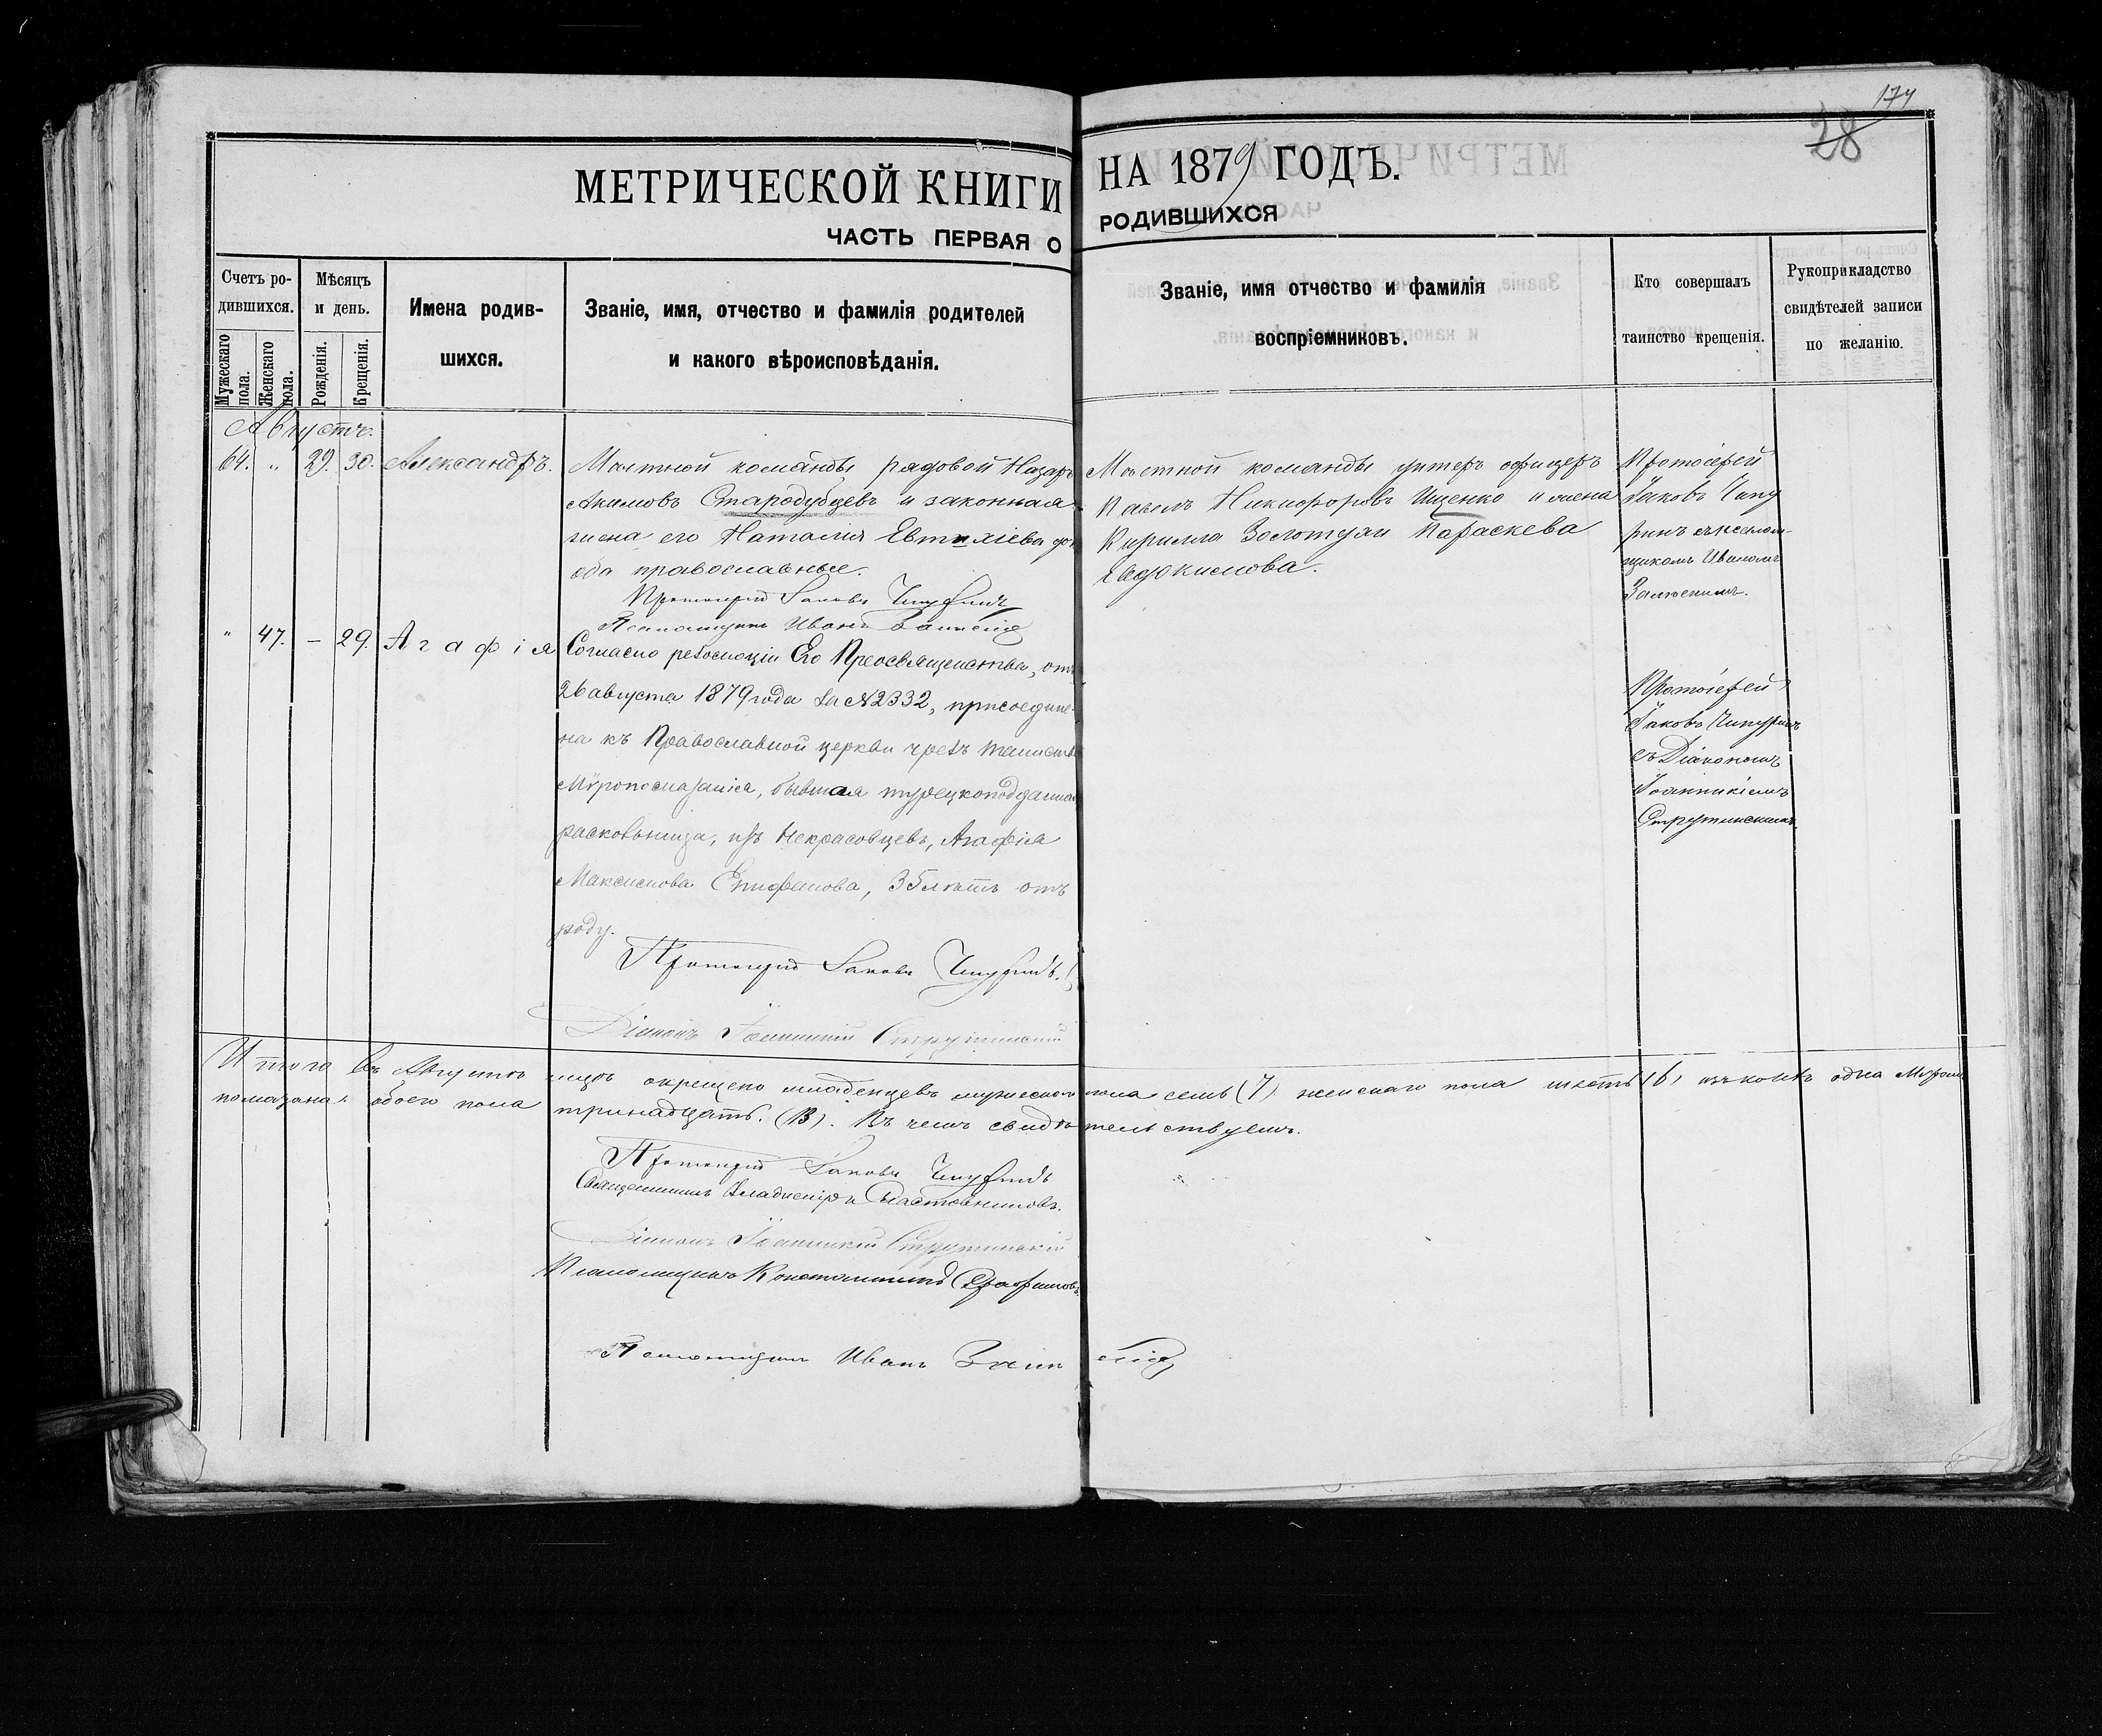 174
28
МЕТРИЧЕСКОЙ КНИГИ НА 1879 ГОДЪ.
ЧАСТЬ ПЕРВАЯ О РОДИВШИХСЯ
Счетъ ро-
дившихся.
Мужескаго пола.
Женскаго пола.
Мѣсяцъ
и день.
Рожденія.
Крещенія.
Имена родив-
шихся.
Званіе, имя, отчество и фамилія родителей
и какого вѣроисповѣданія.
Званіе, имя отчество и фамилія
воспріемниковъ.
Кто совершалъ
таинство крещенія.
Рукоприкладство
свидѣтелей записи
по желанію.
Августъ.
64. " 29. 30. Александръ.
Мѣстной команды рядовой Назаръ
Акимовъ Стародубцевъ и законная
жена его Наталія Евтихіева
оба православные.
Протоіерей Іаковъ Чипуринъ
Псаломщикъ Иванъ
Мѣстной команды унтеръ офицеръ
Павелъ Никифоровъ Ищенко и жена
Кирилла Золотухи Параскева
Евдокимова.
Протоіерей
Іаковъ Чипу
ринъ съ псалом-
щикомъ Иваномъ
" 47. – 29. Агафія
Согласно резолюціи Его Преосвященства, отъ
26 августа 1879 года за №2332, присоедине-
на къ Православной церкви чрезъ таинство
Мѵропомазанія, бывшая турецкоподданная
расковьница, изъ Некрасовцевъ, Агафія
Максимова Епифанова, 35 лѣтъ отъ
роду.
Протоіерей Іаковъ Чипуринъ.
Діаконъ Іоанникій Струтинскій
Протоіерей
Іаковъ Чипуринъ
съ Діакономъ
Іоанникіемъ
Струтинскимъ.
Итого въ Августѣ мцѣ окрещено младенцевъ мужескаго пола семь (7) женскаго пола шесть (6) изъ коихъ одна Мѵропо
помазана, обоего пола тринадцать. (13). Въ чемъ свидѣтельствуемъ.
Протоіерей Іаковъ Чипуринъ
Священникъ Владиміръ
Діаконъ Іоанникій Струтинскій
Псаломщикъ Константинъ
Псаломщикъ Иванъ